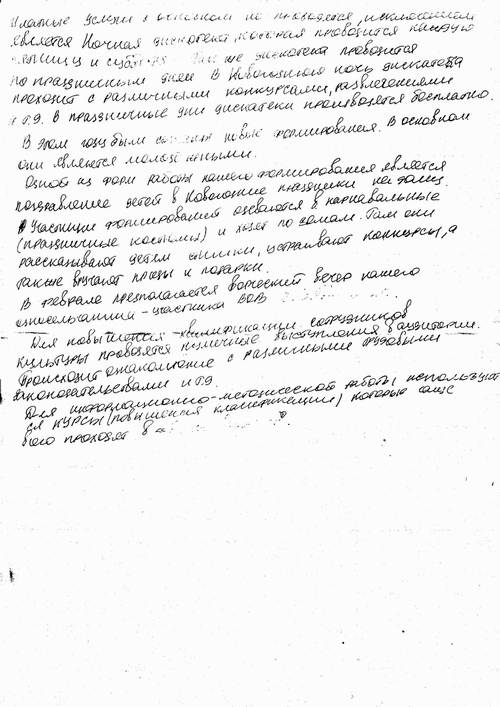 Платные услуги в основном не проводятся, исключением
является Ночная дискотека, которая проводится каждую
пятницу и субботу. Так же дискотека проводится
по праздничным дням. В Новогоднюю ночь дискотека
проходит с различными конкурсами, развлечениями
и т.д. В праздничные дни дискотеки производятся бесплатно.
В этом году были новые формирования. В основном
они являются молодёжными.
Одной из форм работы нашего формирования является
поздравление детей в Новогодние праздники на дому.
Участники формирований одеваются в карнавальные
(праздничные костюмы) и ходят по домам. Там они
рассказывают детям стишки, устраивают конкурсы, а
также вручают призы и подарки.
В феврале предполагается творческий вечер нашего
односельчанина - участника ВОВ
Для повышения квалификации сотрудников
культуры проводятся различные выступления в аудитории.
Происходит ознакомление с различными трудовыми
законодательствами и т.д.
Для информационно-методической работы используют
ся курсы (повышения классификации) которые чаще
всего проходят в